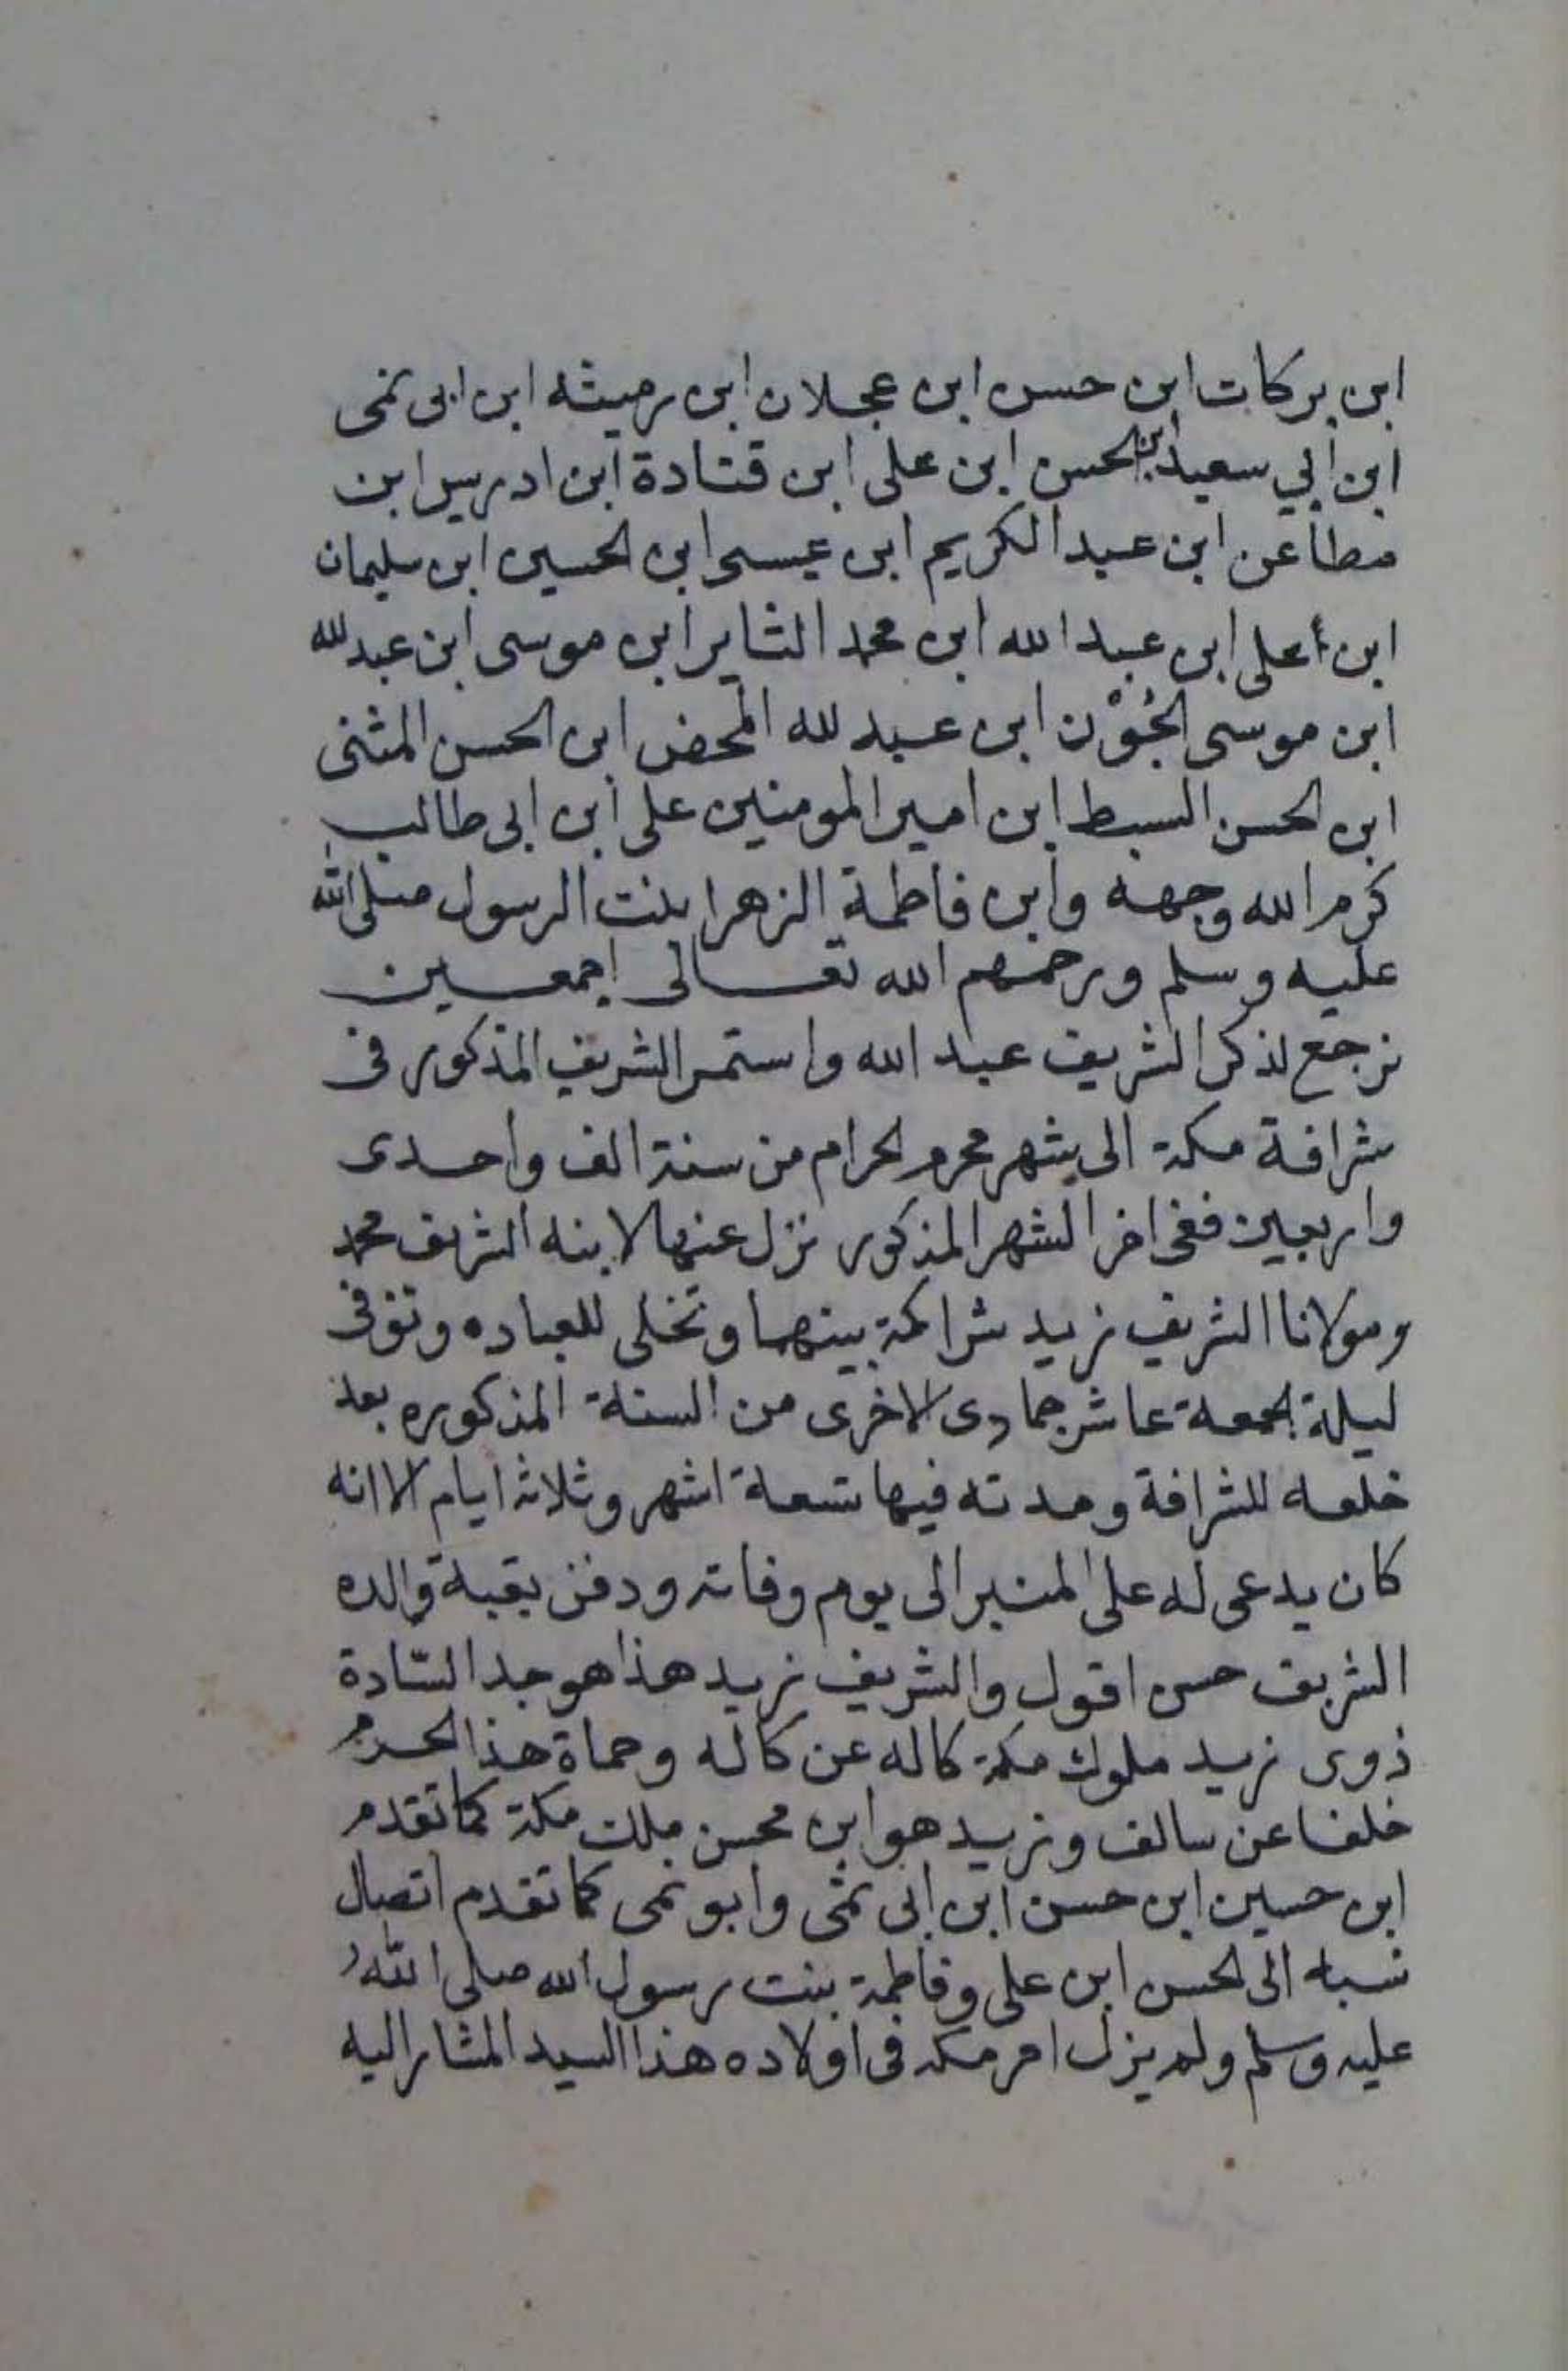 ابن بركات ابن حسن ابن عجلان ابن رميثه ابن ابى نمى
ابن ابي سعيد ابن الحسن ابن على ابن قتادة ابن ادريس ابن
مطاعن ابن عبد الكريم ابن عيسى ابن الحسين ابن سليمان
ابن على ابن عبد الله ابن محمد الثاير ابن موسى ابن عبد لله
ابن موسى الجُوْن ابن عبد لله المحض ابن الحسن المثنى
ابن الحسن السبط ابن امير المومنين على ابن ابى طالب
كرم الله وجهه وابن فاطمة الزهرا بنت الرسول صلى الله
عليه وسلم ورحمهم الله تعالى اجمعين
نرجع لذكر الشريف عبد الله واستمر الشريف المذكور فى
شرافة مكة الى شهر محرم الحرام من سنة الف واحدى
واربعين ففى اخر الشهر المذكور نزل عنها لابنه الشريف محمد
ومولانا الشريف زيد شراكة بينهما وتخلى للعباده وتوفى
ليلة الجمعة عاشر جمادى الاخرى من السنة المذكوره بعد
خلعه للشرافة ومدته فيها تسعة اشهر وثلاثة ايام الا انه
كان يدعى له على المنبر الى يوم وفاته ودفن بقبة والده
الشريف حسن اقول والشريف زيد هذا هو جد السّادة
ذوى زيد ملوك مكة كاله عن كاله وحماة هذا الحرم
خلفا عن سالف وزيد هو ابن محسن ملك مكة كما تقدم
ابن حسين ابن حسن ابن ابى نمى وابو نمى كما تقدم اتصال
نسبه الى الحسن ابن على وفاطمة بنت رسول الله صلى اللهُ
عليه وسلم ولم يزل امر مكه فى اولاده هذا السيد المشار اليه